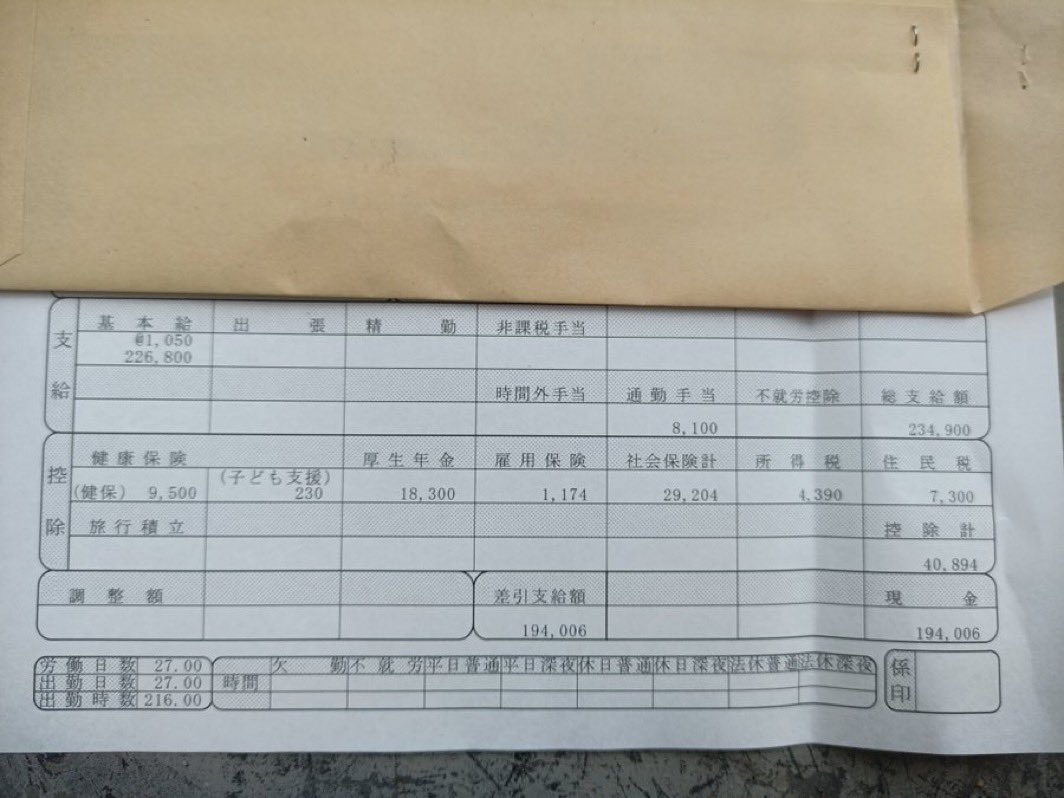 支給
基本給 出張 精勤 非課税手当
@1,050
226,800
時間外手当 通勤手当 不就労控除 総支給額
8,100 234,900
控除
健康保険 厚生年金 雇用保険 社会保険計 所得税 住民税
(子ども支援)
(健保) 9,500 230 18,300 1,174 29,204 4,390 7,300
旅行積立 控除計
40,894
調整額 差引支給額 現金
194,006 194,006
労働日数 27.00 欠勤 不就労 平日普通 平日深夜 休日普通 休日深夜 法休普通 法休深夜 係印
出勤日数 27.00 時間
出勤時数 216.00